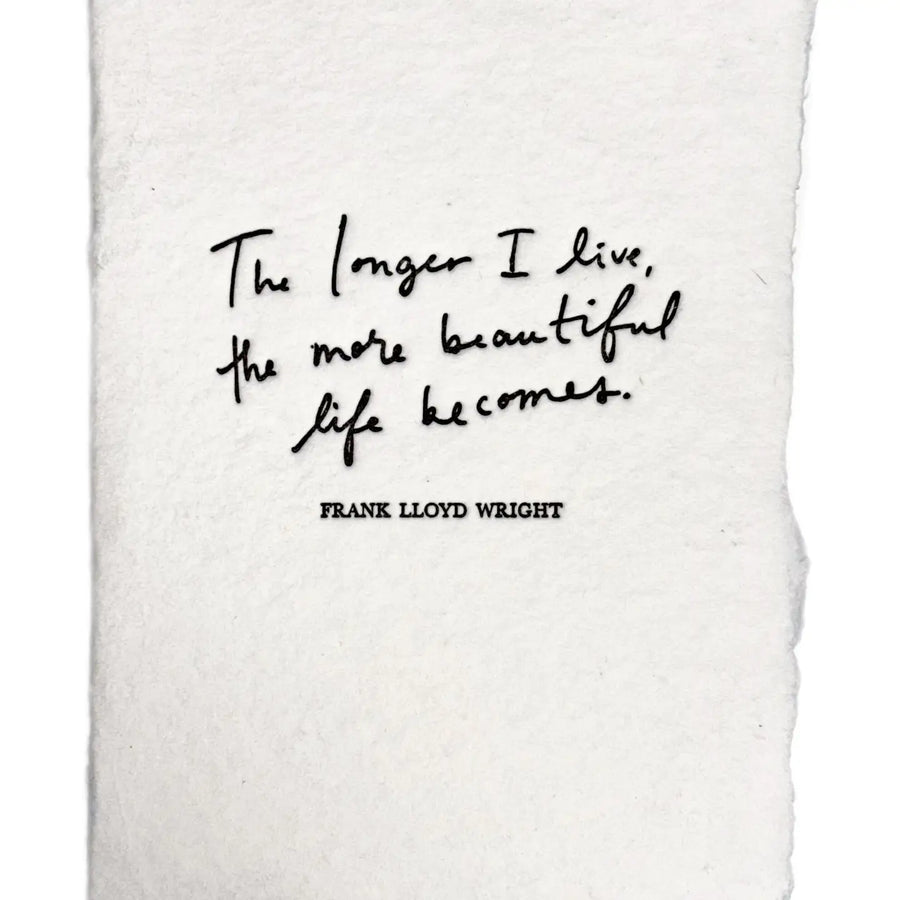 The longer I live,
the more beautiful
life becomes.
FRANK LLOYD WRIGHT